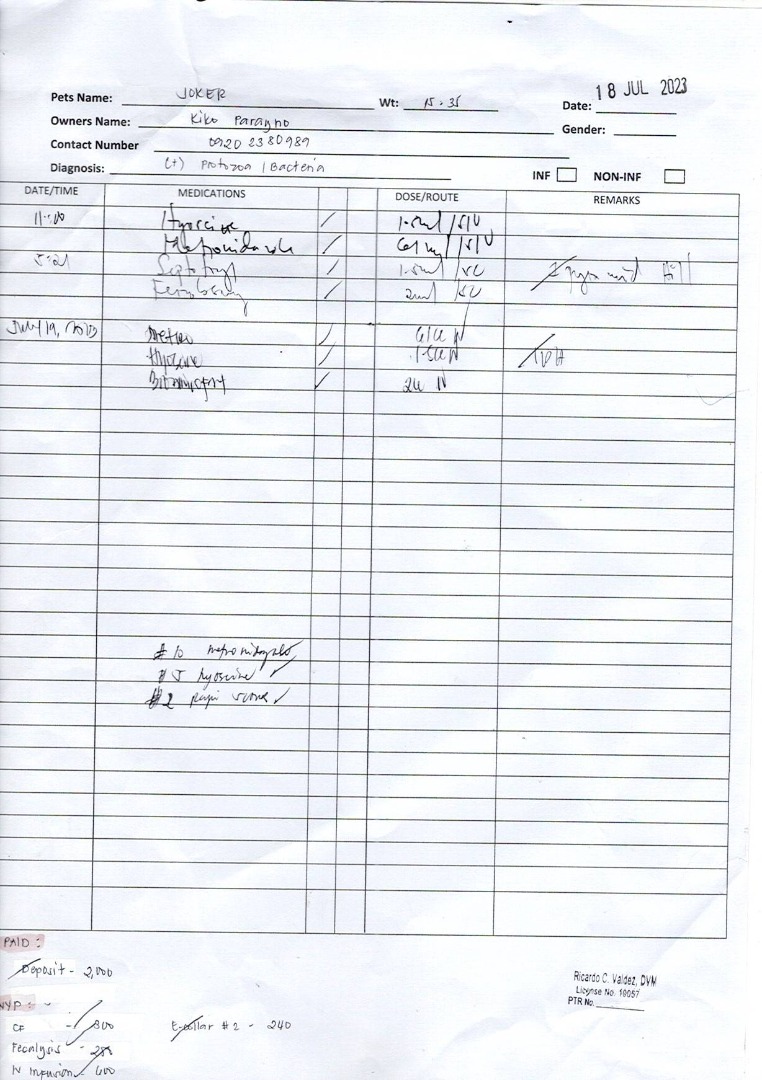 18 JUL 2023
Pets Name: JOKER Wt: 15.35 Date:
Owners Name: Kiko Paragno Gender:
Contact Number 0920 2380989
Diagnosis: (+) Protozoa / Bacteria INF NON-INF
DATE/TIME MEDICATIONS DOSE/ROUTE REMARKS
11:00 Hyoscine 1.5ml / SIV
Metronidazole 61ml / SIV
5:21 Septotryl 1.5ml / SC
2ml / SC
July 19, 2023 Metro IV
Hyoscine 1.5 IV
IV
# 10 metronidazole
# 5 hyoscine
# 2
PAID :
Deposit - 2,000
NYP : -
CF - 300 E-collar # 2 - 240
Fecalysis - 250
IV infusion - 600
Ricardo C. Valdez, DVM
License No. 10057
PTR No.